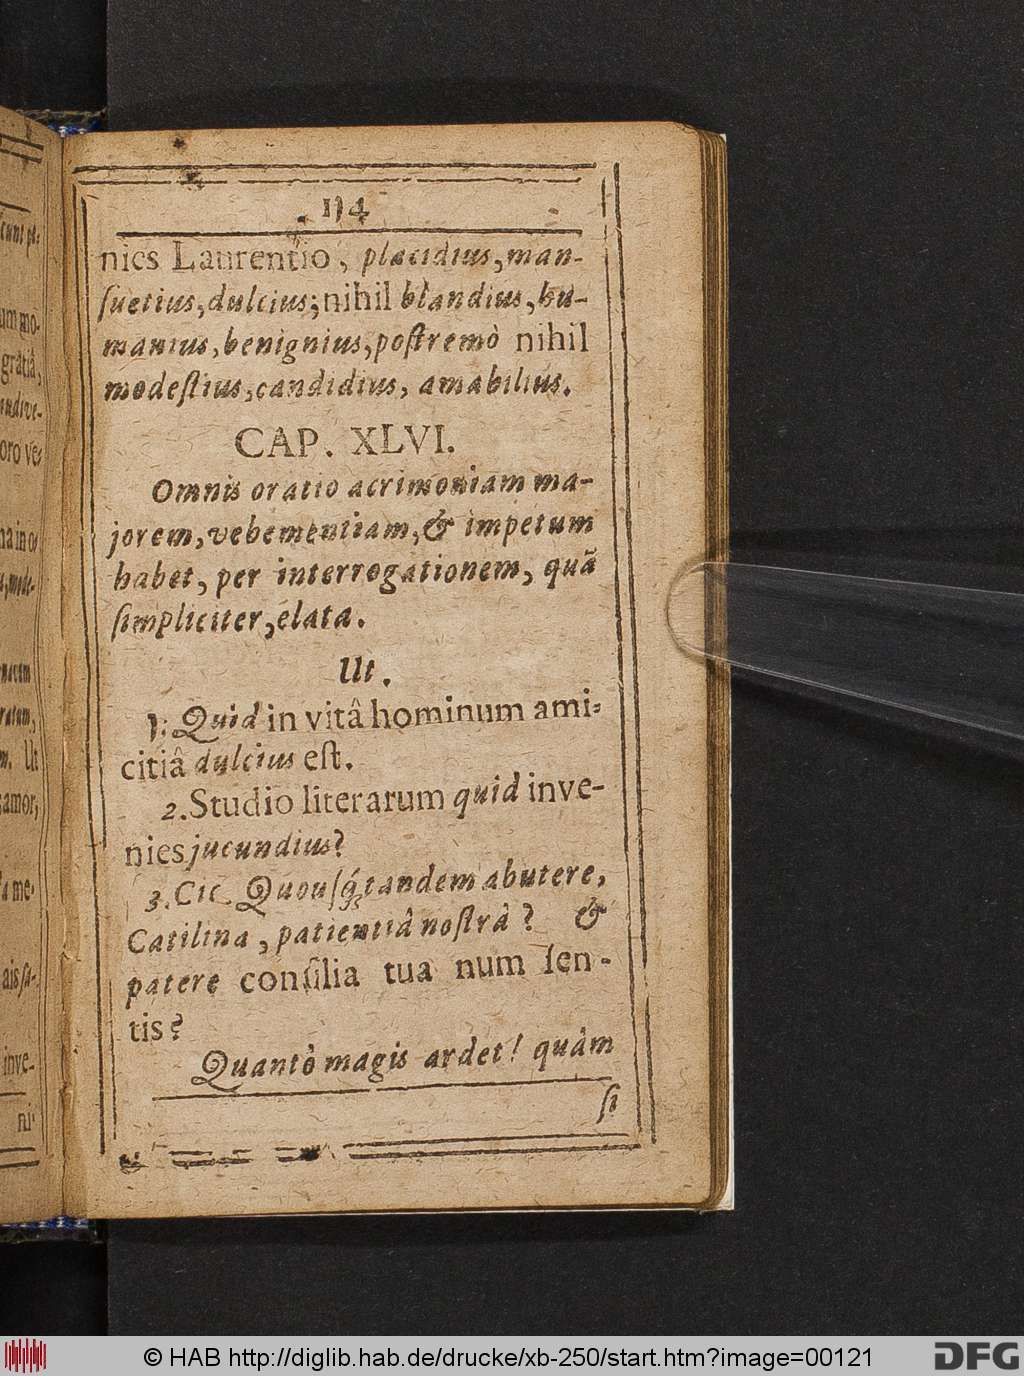 cunt pa-
um mo-
gratiâ,
oro ve-
na in o-
Ut
amor,
a me-
ais sa-
inve-
ni-
114
nies Laurentio, placidius, man-
ſuetius, dulcius; nihil blandius, hu-
manius, benignius, poſtremò nihil
modeſtius, candidius, amabilius.
CAP. XLVI.
Omnis oratio acrimoniam ma-
jorem, vehementiam, & impetum
habet, per interrogationem, quã
ſimpliciter, elata.
Ut.
1. Quid in vitâ hominum ami-
citiâ dulcius eſt.
2. Studio literarum quid inve-
nies jucundius?
3. Cic. Quouſq́; tandem abutere,
Catilina, patientiâ noſtrâ? &
patere conſilia tua num ſen-
tis?
Quantò magis ardet! quàm
ſi
© HAB http://diglib.hab.de/drucke/xb-250/start.htm?image=00121
DFG